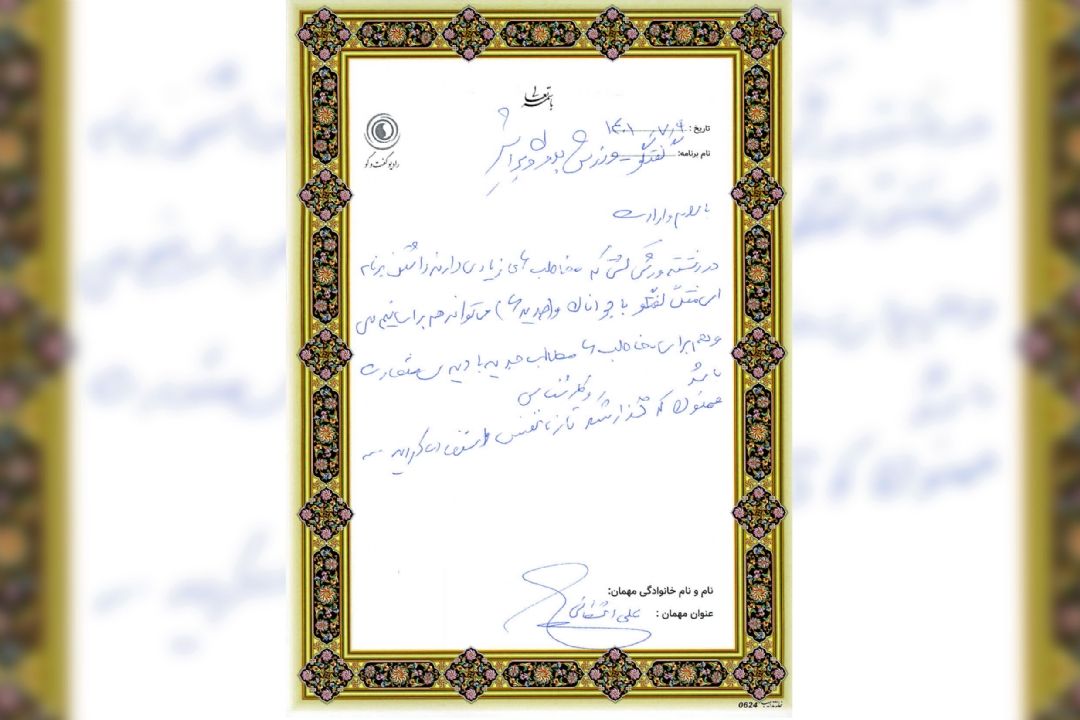 باسمه تعالی
رادیو گفت و گو
تاریخ: ۱۴۰۱/۷/۹
نام برنامه: گفتگوی ورزشی بدون ویرایش
با سلام و ارادت
در رشته ورزشی کشتی که مخاطب های زیادی دارند داشتن برنامه
ای مثل گفتگو با جوانان و جدیدها می‌تواند هم برای تیم ملی
و هم برای مخاطب ها مطالب جدید با دیدی متفاوت
باشد
ممنون که گذاشتید تا از نقش استفاده کردید
نام و نام خانوادگی مهمان:
عنوان مهمان: علی اشکانی
0624